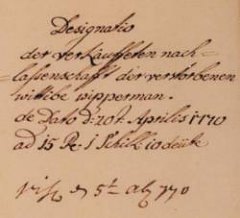 Designatio
der verkauffeten nach-
lassenschafft der verstorbenen
wittibe wipperman.
de Dato d: 20t Aprilis 1770
ad 15 R. 1 Schill: 10 deüte
5t 770